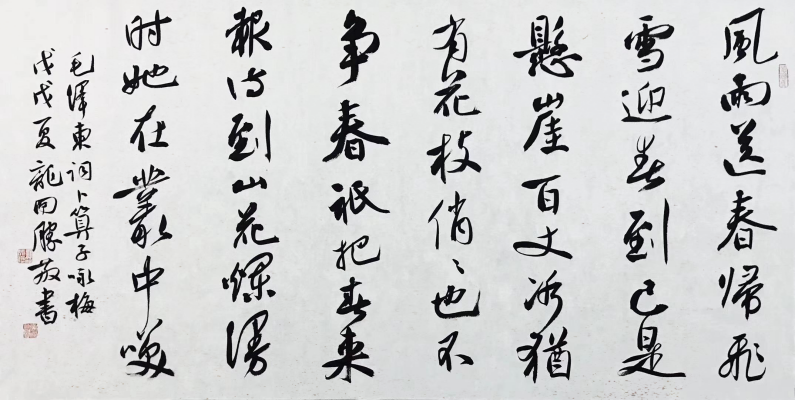 風雨送春歸飛
雪迎春到已是
懸崖百丈冰猶
有花枝俏〻也不
争春祇把春来
報待到山花爛漫
时她在叢中咲
毛澤東词卜算子咏梅
戊戌夏龍勝敬書